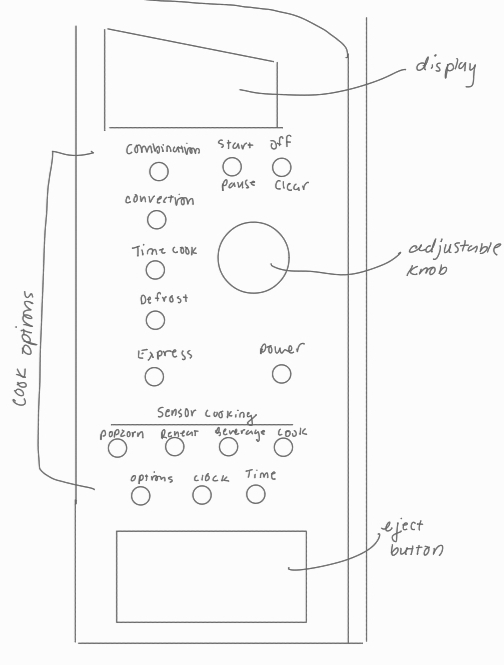 display
Combination Start Off
Pause Clear
Convection
Time Cook
adjustable
knob
Defrost
Cook options
Express Power
Sensor Cooking
Popcorn Reheat Beverage Cook
options Clock Time
eject
button